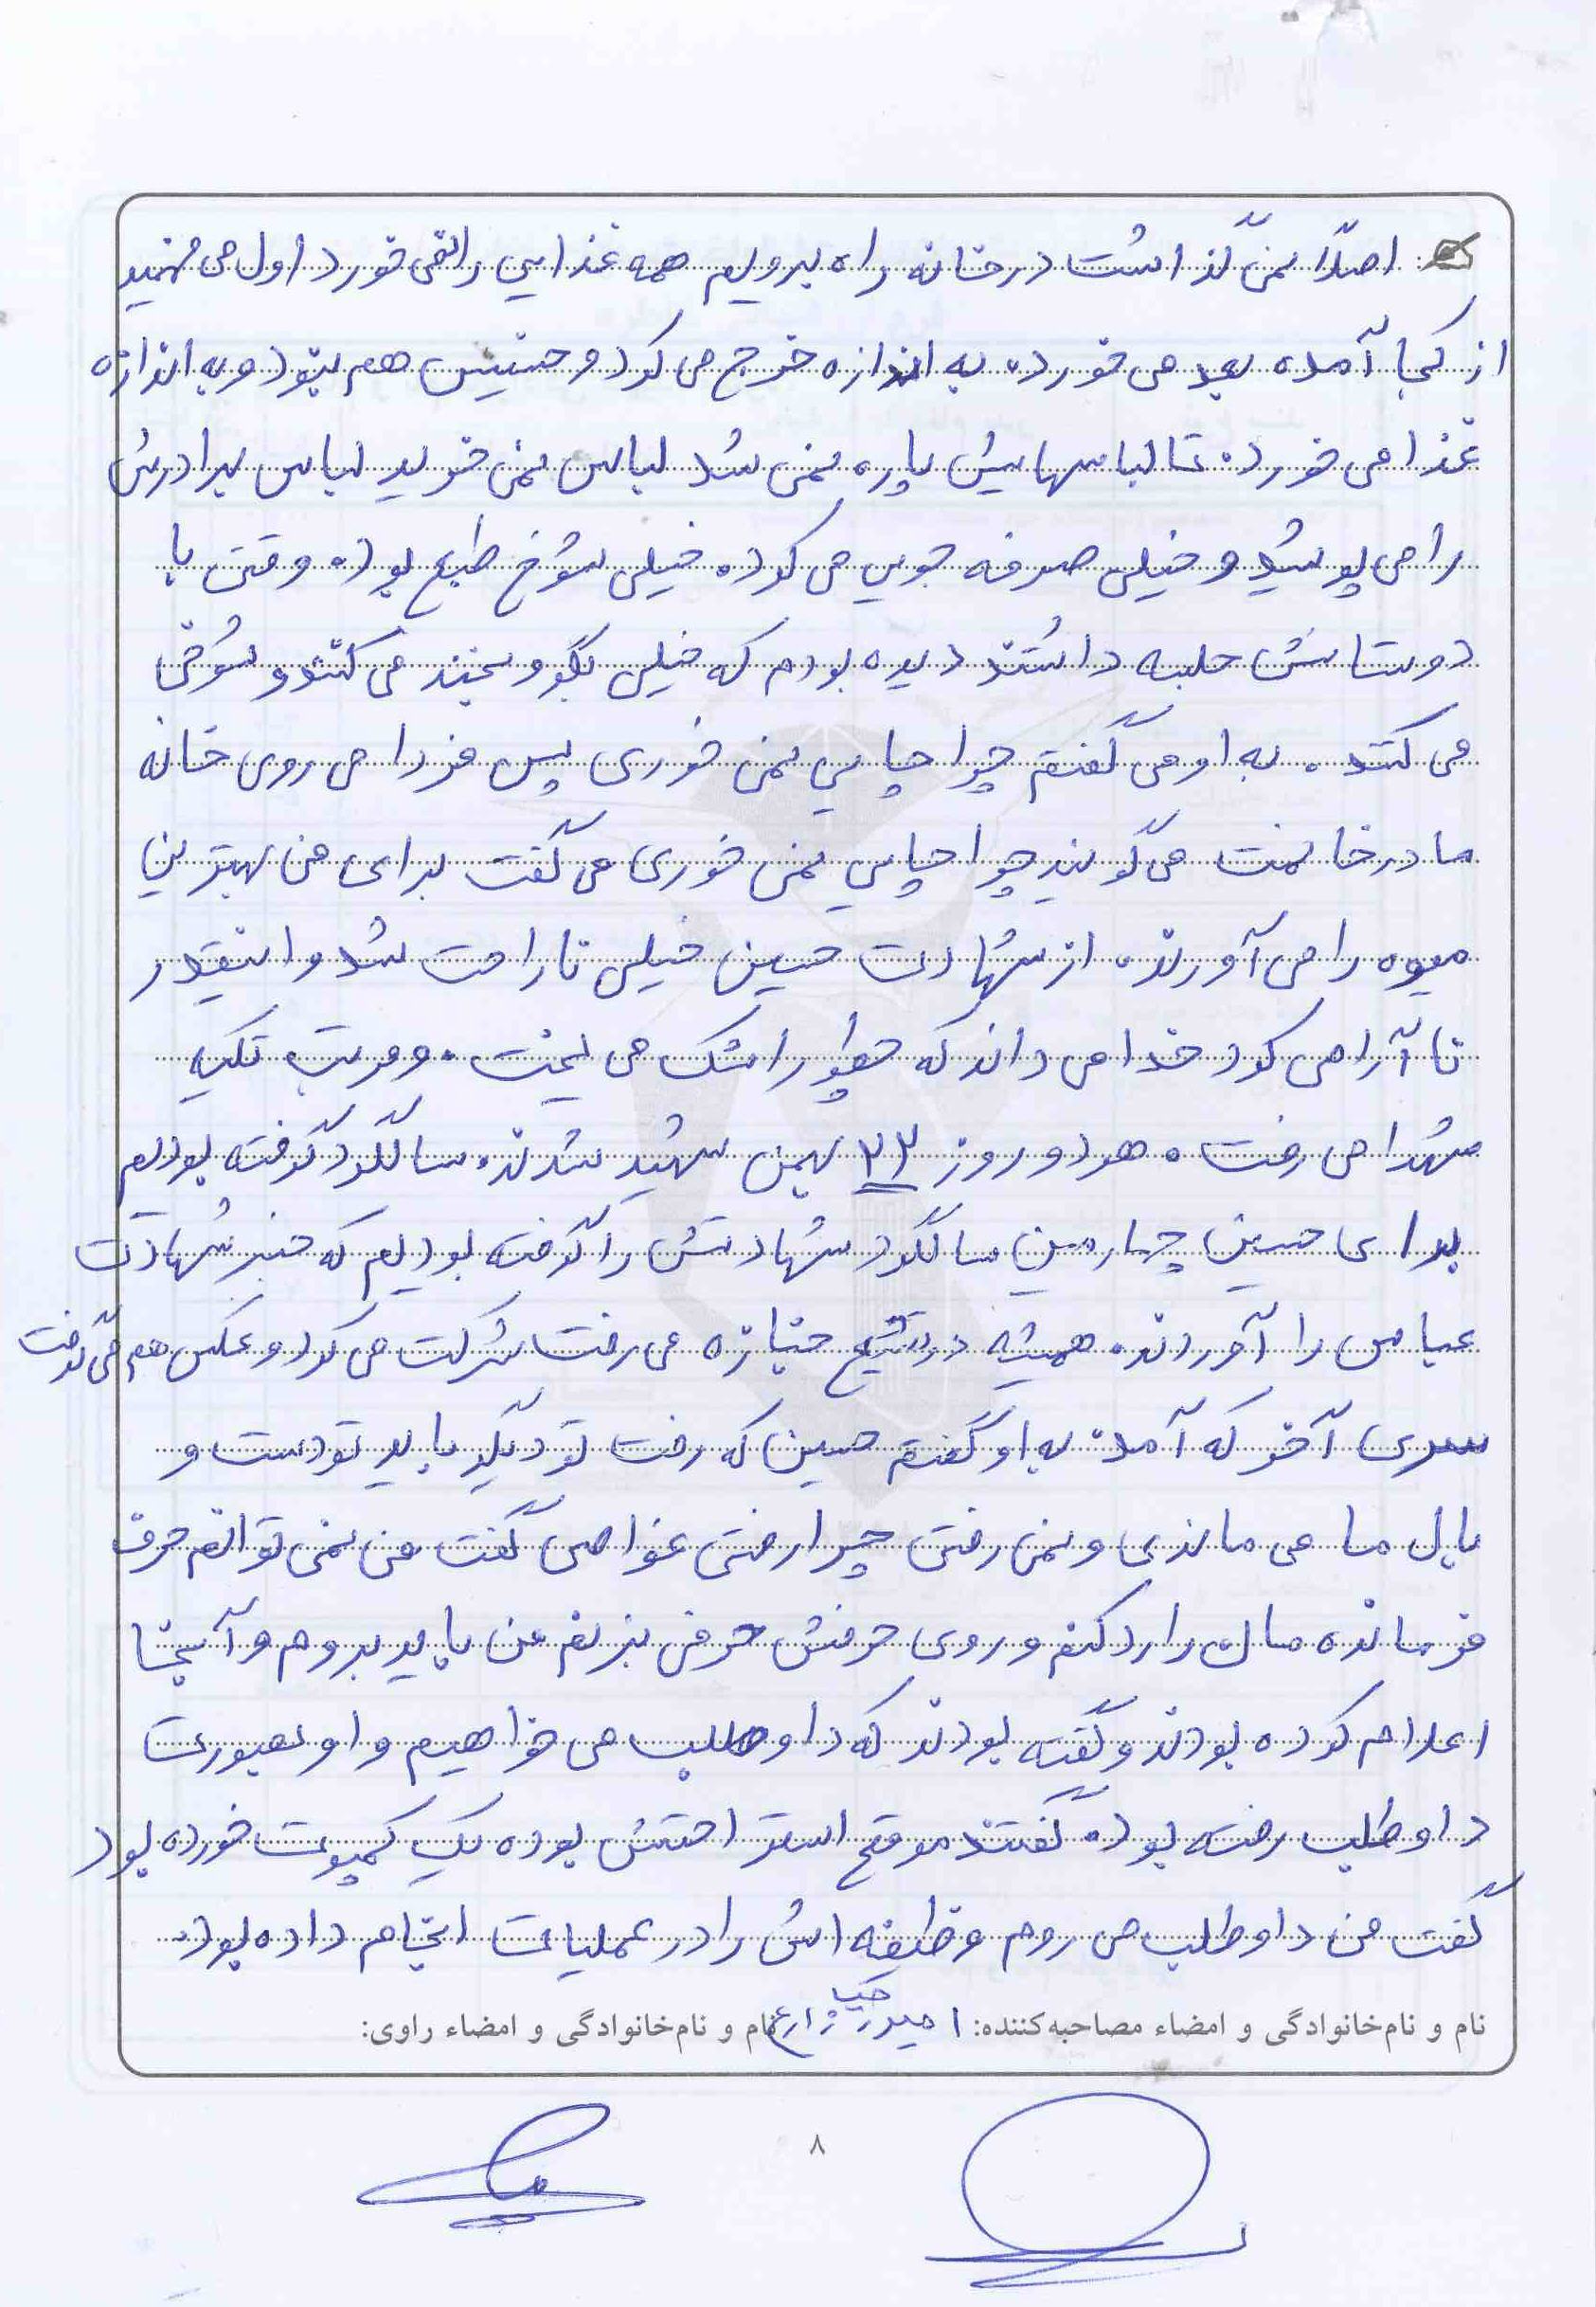 اصلاً نمی گذاشت در خانه راه برویم همه غذایی را نمی خورد اول می فهمید
از کجا آمده بعد می خورد. به اندازه خرج می کرد و خسیس هم نبود و به اندازه
غذا می خورد. تا لباسهایش پاره نمی شد لباس نمی خرید لباس برادرش
را می پوشید و خیلی صرفه جویی می کرد. خیلی شوخ طبع بود. وقتی با
دوستانش جلسه داشتند دیده بودم که خیلی بگو و بخند می کنند و شوخی
می کنند. به او می گفتم چرا چایی نمی خوری پس فردا می روی خانه
مادرخانمت می گویند چرا چایی نمی خوری می گفت برای من بهترین
میوه را می آورند. از شهادت حسین خیلی ناراحت شد و اینقدر
ناآرامی کرد خدا می داند که چطور اشک می ریخت. و مرتب تکیه
شهدا می رفت. هر دو روز ۲۲ بهمن شهید شدند. سالگرد گرفته بودیم
برای حسین چهارمین سالگرد شهادتش را گرفته بودیم که خبر شهادت
عباس را آوردند. همیشه در تشییع جنازه می رفت شرکت می کرد و عکس هم می گرفت
سری آخر که آمد. به او گفتم حسین که رفت تو دیگر باید تو دست و
بال ما می ماندی و نمی رفتی چرا رفتی غواصی گفت من نمی توانم حرف
فرمانده مان را رد کنم و روی حرفش حرفی بزنم من باید بروم و آنجا
اعلام کرده بودند و گفته بودند که داوطلب می خواهیم و او بصورت
داوطلب رفته بود. گفتند موقع استراحتش بوده یک کمپوت خورده بود
گفت من داوطلب می روم وظیفه اش را در عملیات انجام داده بود.
نام و نام‌خانوادگی و امضاء مصاحبه‌کننده: نام و نام‌خانوادگی و امضاء راوی:
۸